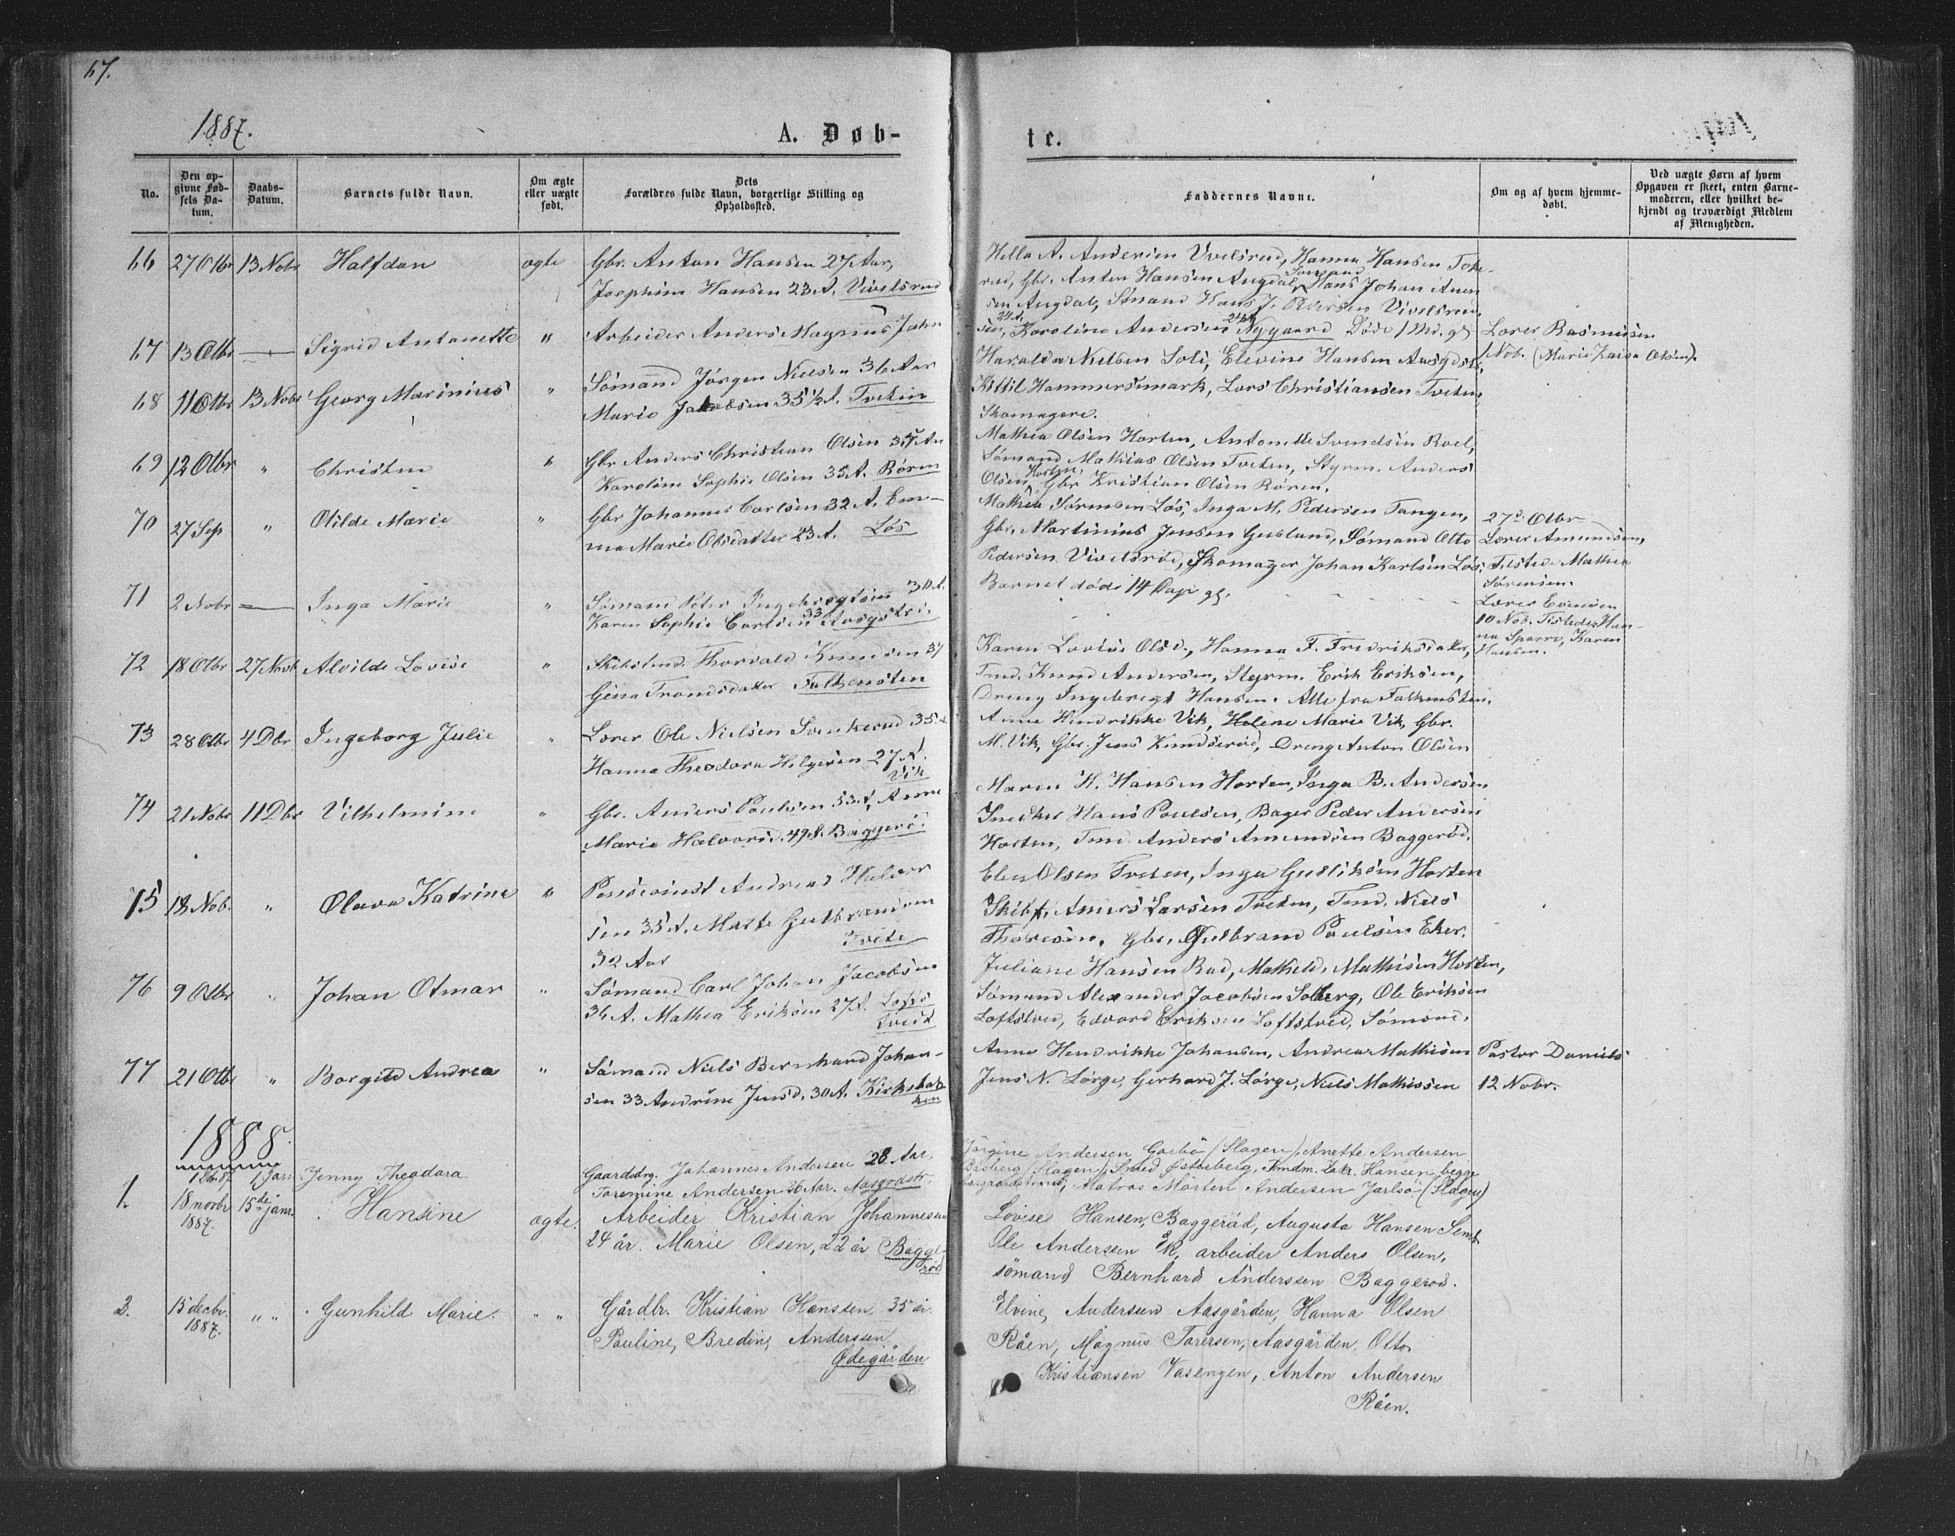 67.
1887.
A. Døb-
te.
No.
Den op-
givne Fød-
sels Da-
tum.
Daabs-
Datum.
Barnets fulde Navn.
Om ægte
eller uægte
født.
Dets
Forældres fulde Navn, borgerlige Stilling og
Opholdssted.
Faddernes Navne.
Om og af hvem hjemme-
døbt.
Ved uægte Børn af hvem
Opgaven er skeet, enten Barne-
moderen, eller hvilket be-
kjendt og troværdigt Medlem
af Menigheden.
66 27 Otbr 13 Nobr Halfdan ægte Gbr. Anton Hansen 27 Aar,
Josephine Hansen 23 A. Vivelsrud
Andersen Hanna Hansen
Gbr. Anton Hansen Augdal, Hans Johan
Augdal, Hans J.
67 13 Otbr Sigrid Antonette " Arbeider Anders Magnus John
sen, Karoline Andersen Nygaard Døde
Lærer Rasmussen
Nob. (Marie Olsen).
68 11 Otbr 13 Nobr Georg Marinius " Sømand Jørgen Nielsen 36 Aar
Marie Jakobsen 35½ A. Tveten
Nielsen Elevine Hansen
Kittil Hammersmark, Lars Christiansen Tveten,
Skomagere.
69 12 Otbr " Christine " Gbr Anders Christian Olsen
Karoline Sophie Olsen 35 A. Røren
Mathea Olsen Horten, Antonette Svendsen Roel,
Sømand Mathias Olsen Tveten, Styrm. Anders
Olsen, Horten, Gbr Kristian Olsen Røren.
70 27 Sep " Otilde Marie " Gbr Johannes Carlsen 32 A. Em-
ma Marie Olsdatter 23 A. Løs
Mathea Sørensen Løs, Inga M. Pedersen Tangen,
Gbr. Martinius Jensen Sømand Otto
Pedersen Vivelsrød, Skomager Johan Karlsen Løs.
Barnet døde 14 Dage gl.
27de Otbr
Lærer Amundsen,
Tilstede Mathea
Sørensen.
71 2 Nobr Inga Marie " Sømand Peter Ingebregtsen
Karen Sophie Carlsen 33
Lærer Evensen
10 Nob. Tilstede Han-
na Sparre, Karen
Hansen.
72 18 Otbr 27 Nob Alvilde Lovise " Thorvald Knudsen 37
Gina Trondsdatter Falkensten
Karen Lovise Olsd., Hanna F. Fredriksdatter,
Tmd. Knud Andersen, Styrm. Erik Eriksen,
Dreng Ingebregt Hansen. Alle fra Falkensten.
73 28 Otbr 4 Dbr Ingeborg Julie " Lærer Ole Nielsen Svenkerud 35 A
Hanna Theodora Helgesen 27 A.
Vik
Anne Hendrikke Vik, Helene Marie Vik, Gbr.
M. Vik, Gbr. Jens Knudsrød, Dreng Anton Olsen
74 21 Nobr 11 Dbr Vilhelmine " Gbr. Anders Paulsen 53 A, Anne
Marie Halvorsd. 49 A. Baggerø.
Maren H. Hansen Horten, Inga B. Andersen
Snedker Hans Poulsen, Bager Peder Andersen
Horten, Tmd. Anders Amundsen Baggerød.
75 18 Nob. " Olava Katrine " Andreas Halvor
sen 35 A. Marte Gulbrandsen
32 Aar Tvete
Olsen Tveten, Inga Gulliksen Horten
Skibf. Anders Larsen Tveten, Tmd. Niels
Thoresen, Gbr. Gulbrand Paulsen Eker.
76 9 Otbr " Johan Otmar " Sømand Carl Johan Jacobsen
36 A. Mathea Eriksen 27 A. Lofts
tvedt
Juliane Hansen Rud, Mathild. Mathisen Horten,
Sømand Alexander Jacobsen Solberg, Ole Eriksen
Loftstved, Edvard Eriksen Loftstved, Sømænd.
77 21 Otbr " Borgild Andrea " Sømand Niels Bernhard Johan-
sen 33 Andrine Jensd. 30 A. Kirkebak
ken
Anne Hendrikke Johansen, Andrea Mathisen
Jens N. Lørge, Gerhard J. Lørge, Niels Mathissen
Pastor Daniels
12 Nobr.
1888.
1 Jan Jenny Theodora Gaardbrg. Johannes Andersen 28 Aar.
Toremine Andersen 26 Aar.
Jørgine Andersen (Slagen), Anette Andersen
(Slagen), Smed Østeberg, Hansen, begge
Matros Morten Andersen Jarlsø (Slagen)
1. 18 novbr 1887. 15de janr. Hansine ægte. Arbeider Kristian Johannesen
24 år. Marie Olsen, 22 år Bagge-
rød
Lovise Hansen, Baggerød, Augusta Hansen Semb
Ole Anderssen arbeider Anders Olsen,
sömand Bernhard Anderssen Baggerød.
2. 15 decbr. 1887. " " Gunhild Marie. " " Gårdbr. Kristian Hansten 35 år.
Pauline, Bredine, Anderssen
Ødegården
Elvine, Andersen Aasgården, Hanna Olsen
Råen, Magnus Torersen, Aasgården, Otto
Kristiansen Vasengen, Anton Andersen
Råen.